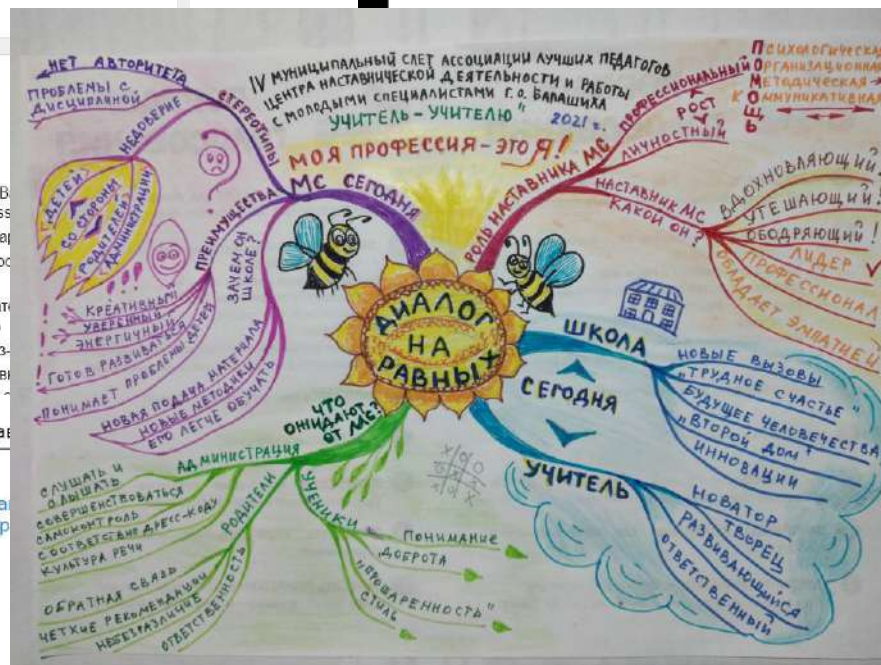 IV МУНИЦИПАЛЬНЫЙ СЛЕТ АССОЦИАЦИИ ЛУЧШИХ ПЕДАГОГОВ
ЦЕНТРА НАСТАВНИЧЕСКОЙ ДЕЯТЕЛЬНОСТИ И РАБОТЫ
С МОЛОДЫМИ СПЕЦИАЛИСТАМИ Г.О. БАЛАШИХА
УЧИТЕЛЬ - УЧИТЕЛЮ" 2021 г.
МОЯ ПРОФЕССИЯ - ЭТО Я!
ДИАЛОГ
НА
РАВНЫХ
МС СЕГОДНЯ
СТЕРЕОТИПЫ
НЕТ АВТОРИТЕТА
ПРОБЛЕМЫ С
ДИСЦИПЛИНОЙ
НЕДОВЕРИЕ
СО СТОРОНЫ
ДЕТЕЙ
РОДИТЕЛЕЙ
АДМИНИСТРАЦИИ
ПРЕИМУЩЕСТВА
КРЕАТИВНЫЙ
УВЕРЕННЫЙ
ЭНЕРГИЧНЫЙ
ГОТОВ РАЗВИВАТЬСЯ
ПОНИМАЕТ ПРОБЛЕМЫ ДЕТЕЙ
ЗАЧЕМ ОН
ШКОЛЕ?
НОВАЯ ПОДАЧА МАТЕРИАЛА
НОВЫЕ МЕТОДИКИ
ЕГО ЛЕГЧЕ ОБУЧАТЬ
РОЛЬ НАСТАВНИКА МС
ПРОФЕССИОНАЛЬНЫЙ
РОСТ
ЛИЧНОСТНЫЙ
ПОМОЩЬ
ПСИХОЛОГИЧЕСКАЯ
ОРГАНИЗАЦИОННАЯ
МЕТОДИЧЕСКАЯ
КОММУНИКАТИВНАЯ
НАСТАВНИК МС
КАКОЙ ОН?
ВДОХНОВЛЯЮЩИЙ!
УТЕШАЮЩИЙ!
ОБОДРЯЮЩИЙ!
ЛИДЕР
ПРОФЕССИОНАЛ
ОБЛАДАЕТ ЭМПАТИЕЙ
ШКОЛА
СЕГОДНЯ
УЧИТЕЛЬ
НОВЫЕ ВЫЗОВЫ
„ТРУДНОЕ СЧАСТЬЕ"
БУДУЩЕЕ ЧЕЛОВЕЧЕСТВА
„ВТОРОЙ ДОМ"
ИННОВАЦИИ
НОВАТОР
ТВОРЕЦ
РАЗВИВАЮЩИЙСЯ
ОТВЕТСТВЕННЫЙ
ЧТО
ОЖИДАЮТ
ОТ МС?
АДМИНИСТРАЦИЯ
СЛУШАТЬ И
СЛЫШАТЬ
СОВЕРШЕНСТВОВАТЬСЯ
САМОКОНТРОЛЬ
СООТВЕТСТВИЕ ДРЕСС-КОДУ
КУЛЬТУРА РЕЧИ
РОДИТЕЛИ
ОБРАТНАЯ СВЯЗЬ
ЧЕТКИЕ РЕКОМЕНДАЦИИ
НЕБЕЗРАЗЛИЧИЕ
ОТВЕТСТВЕННОСТЬ
УЧЕНИКИ
ПОНИМАНИЕ
ДОБРОТА
"ПРОШАРЕННОСТЬ"
СТИЛЬ